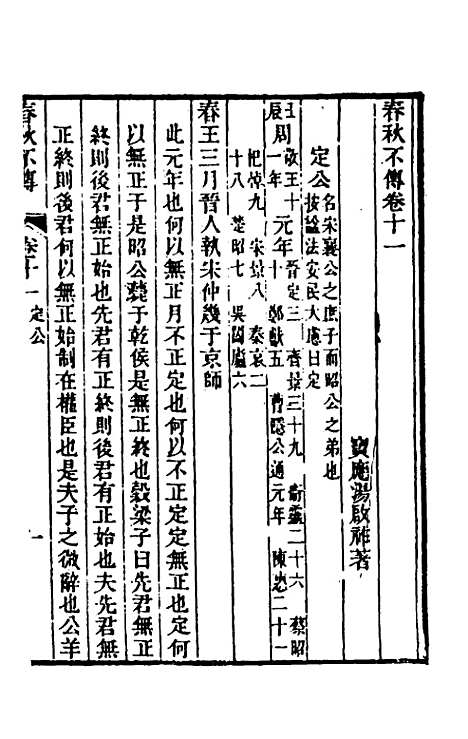 春秋不傳卷十一
寶應湯啟祚著
定公名宋襄公之庶子而昭公之弟也
按謚法安民大慮曰定
壬辰
周敬王十一年
元年晉定三 齊景三十九 衛靈二十六 蔡昭十
鄭獻五 曹隱公通元年 陳惠二十一
杞悼九 宋景八 秦哀二十八 楚昭七 吳闔廬六
春王三月晉人執宋仲幾于京師
此元年也何以無正月不正定也何以不正定定無正也定何
以無正于是昭公薨于乾侯是無正終也穀梁子曰先君無正
終則後君無正始也先君有正終則後君有正始也夫先君無
正終則後君何以無正始制在權臣也是夫子之微辭也公羊
春秋不傳
卷十一 定公
一